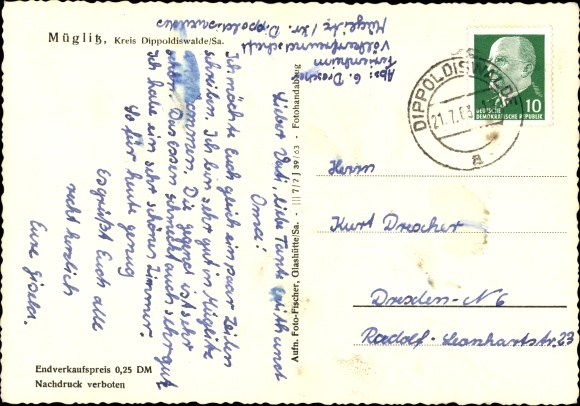 Müglitz, Kreis Dippoldiswalde/Sa.
Abs: G. Drescher
Ferienheim
Völkerfreundschaft
Müglitz / Kr. Dippoldiswalde
Lieber Vati, liebe Tante Edith und
Oma!
Ich möchte Euch gleich ein paar Zeilen
schreiben. Ich bin sehr gut in Müglitz
angekommen. Die Gegend ist sehr
schön. Das Essen schmeckt auch sehr gut
Ich habe ein sehr schönes Zimmer.
So für heute genug
Es grüßt Euch alle
recht herzlich
Eure Gisela.
Endverkaufspreis 0,25 DM
Nachdruck verboten
Aufn. Foto-Fischer, Glashütte/Sa. - III 7/2 J 39/63 - Fotohandabzug
DIPPOLDISWALDE
21.7.63
a
10
DEUTSCHE
DEMOKRATISCHE REPUBLIK
Herrn
Kurt Drescher
Dresden-N 6
Rudolf-Leonhartstr. 23